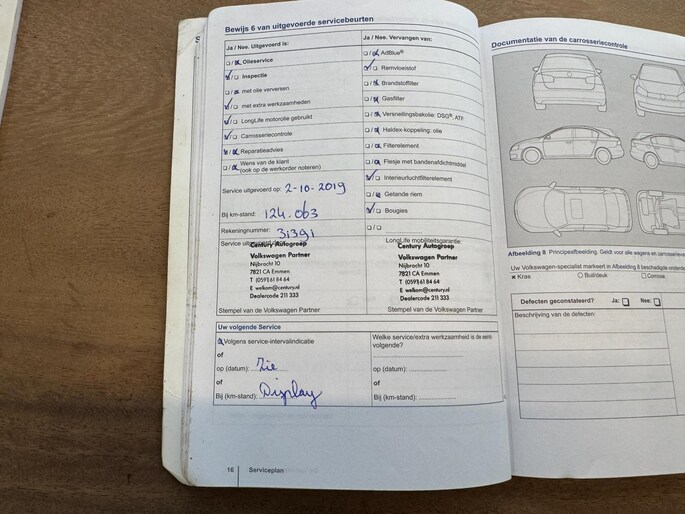 Bewijs 6 van uitgevoerde servicebeurten
Ja / Nee. Uitgevoerd is:
Olieservice
Inspectie
met olie verversen
met extra werkzaamheden
LongLife motorolie gebruikt
Carrosseriecontrole
Reparatieadvies
Wens van de klant
(ook op de werkorder noteren)
Service uitgevoerd op: 2-10-2019
Bij km-stand: 124.063
Rekeningnummer: 31391
Service
Century Autogroep
Volkswagen Partner
Nijbracht 10
7821 CA Emmen
T (0591) 61 84 64
E welkom@century.nl
Dealercode 211 333
Stempel van de Volkswagen Partner
Ja / Nee. Vervangen van:
AdBlue®
Remvloeistof
Brandstoffilter
Gasfilter
Versnellingsbakolie: DSG®, ATF
Haldex-koppeling: olie
Filterelement
Flesje met bandenafdichtmiddel
Interieurluchtfilterelement
Getande riem
Bougies
LongLife mobiliteitsgarantie:
Century Autogroep
Volkswagen Partner
Nijbracht 10
7821 CA Emmen
T (0591) 61 84 64
E welkom@century.nl
Dealercode 211 333
Stempel van de Volkswagen Partner
Uw volgende Service
Volgens service-intervalindicatie
of
op (datum): Zie
of
Bij (km-stand): Display
Welke service/extra werkzaamheid is de eerst-
volgende?
op (datum):
of
Bij (km-stand):
16 Serviceplan
Documentatie van de carrosseriecontrole
Afbeelding 8 Principeafbeelding. Geldt voor alle wagens en
Uw Volkswagen-specialist markeert in Afbeelding 8 beschadigde
Kras Buil/deuk
Defecten geconstateerd? Ja: Nee:
Beschrijving van de defecten: